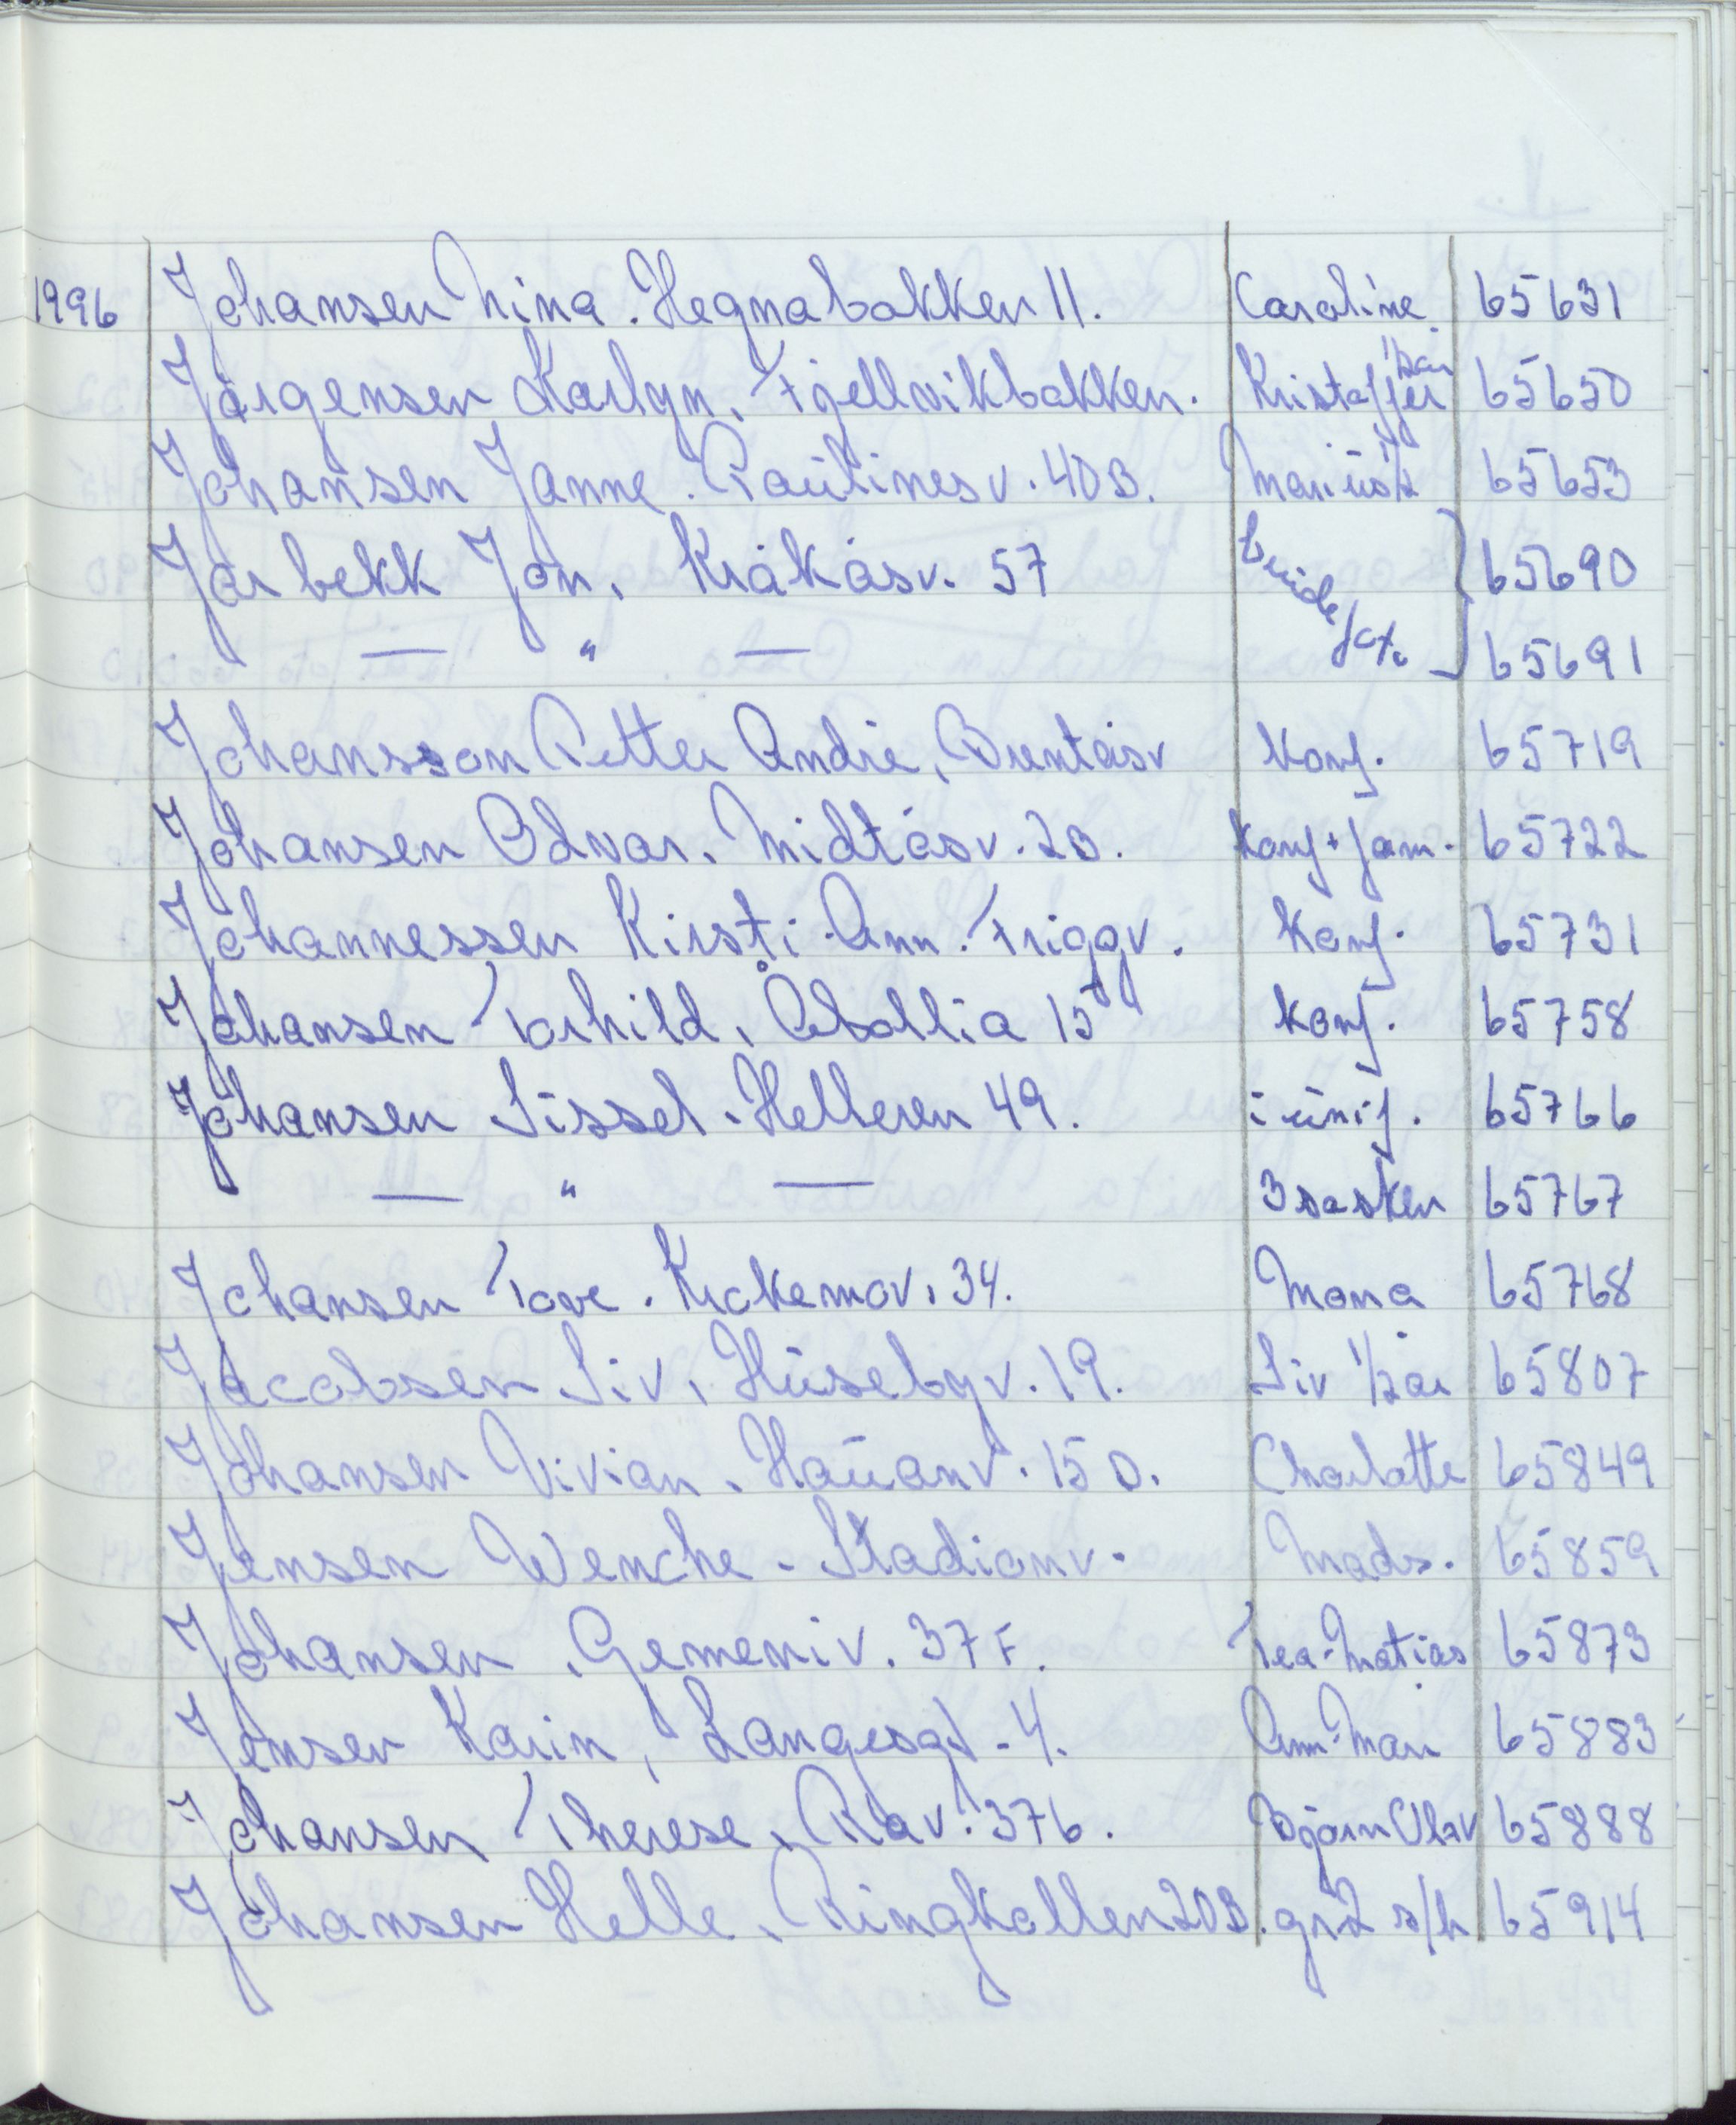 1996 Johansen Nina. Hegnabakken 11. Caroline. 65631
Jørgensen Karlyn. Fjellvikbakken. Kristoffer 1/2 år 65650
Johansen Janne. Paulinesv. 40B. Marius 1/2 65653
Jarbekk Jon. Kråkåsv. 57 brude fot. 65690
— " — 65691
Johansson Petter André, Bruntåsv Konf. 65719
Johansen Odvar. Midtåsv. 2B. Konf + fam. 65722
Johannessen Kirsti-Ann. Friggv. Konf. 65731
Johansen Torhild, Åbollia 15 Konf. 65758
Johansen Sissel. Helleren 49. i unif. 65766
— " — 3 søsken 65767
Johansen Tove. Krokemov. 34. Mona 65768
Jacobsen Siv, Husebyv. 19. Siv 1/2 år 65807
Johansen Vivian. Hauanv. 15D. Charlotte 65849
Jensen Wenche. Stadionv. Mads. 65859
Johansen. Gemeniv. 37F. Tea-Matias 65873
Jensen Karin, Langesgt. 4. Ann-Mari 65883
Johansen Therese, Rav. 37b. Bjørn Olav 65888
Johansen Helle. Ringkollen 20B. gr. 2 s/h 65914